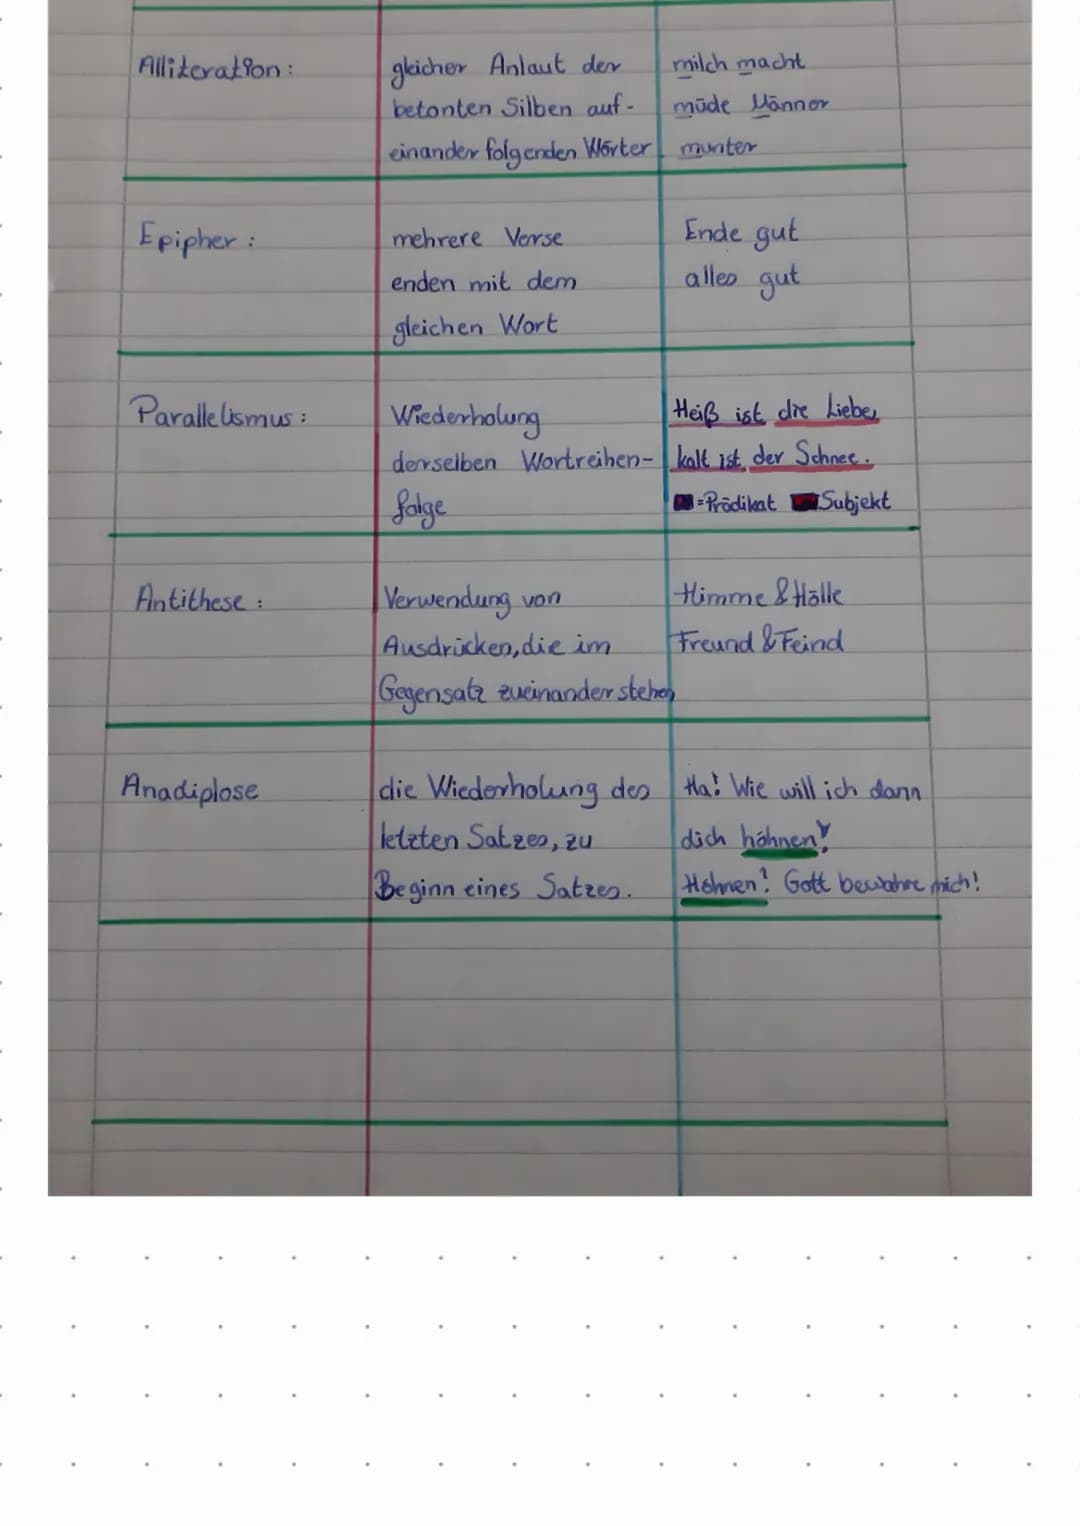 Alliteration:
gleicher Anlaut der
betonten Silben auf-
einander folgenden Wörter
milch macht
müde Männer
munter
Epipher:
mehrere Verse
enden mit dem
gleichen Wort
Ende gut
alles gut
Parallelismus:
Wiederholung
derselben Wortreihen-
folge
Heiß ist die Liebe,
kalt ist der Schnee.
=Prädikat Subjekt
Antithese:
Verwendung von
Ausdrücken, die im
Gegensatz zueinander stehen
Himme & Hölle
Freund & Feind
Anadiplose
die Wiederholung des
letzten Satzes, zu
Beginn eines Satzes.
Ha! Wie will ich dann
dich höhnen!
Höhnen! Gott bewahre mich!